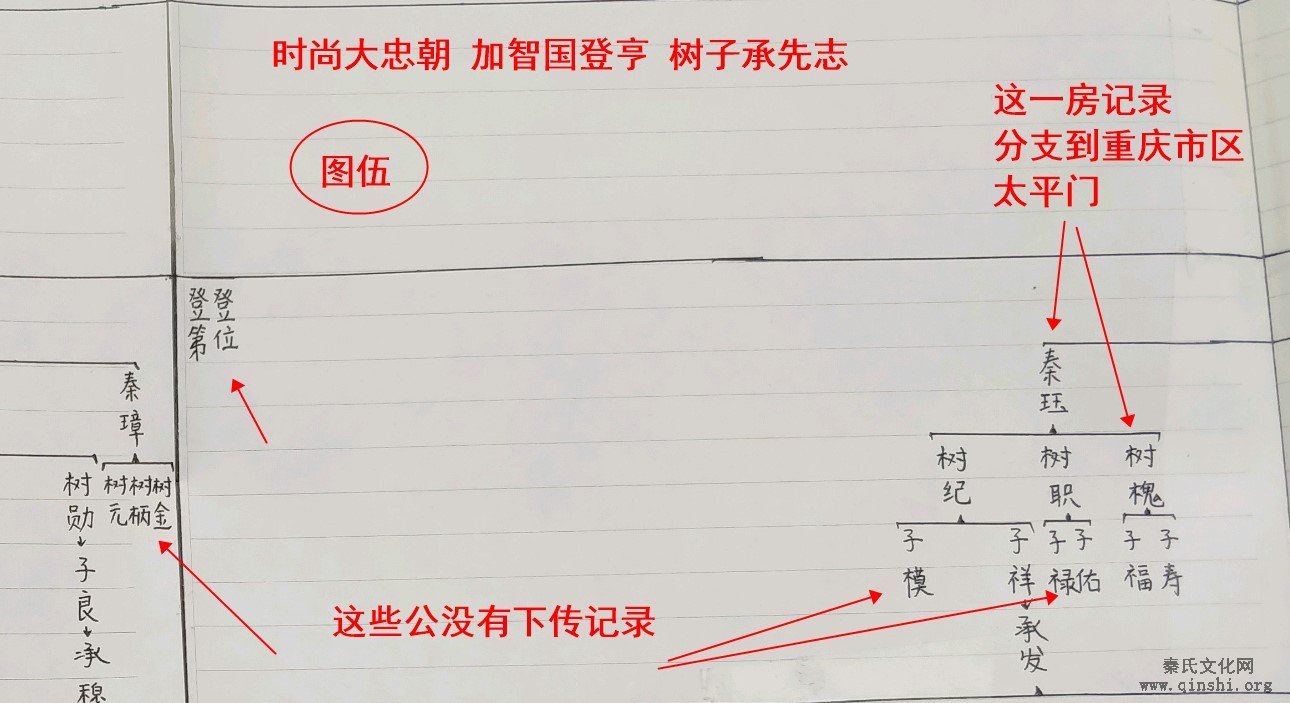 时尚大忠朝 加智国登亨 树子承先志
图伍
这一房记录
分支到重庆市区
太平门
登第
登位
秦璋
树勋
树元
树柄
树金
子良
承穆
秦珏
树纪
树职
树槐
子模
子祥
子禄
子佑
子福
子寿
承发
这些公没有下传记录
秦氏文化网
www.qinshi.org